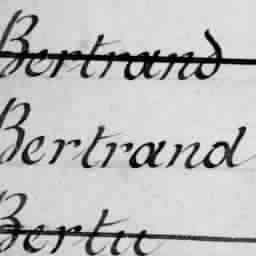 Bertrand
Bertrand
Bertu